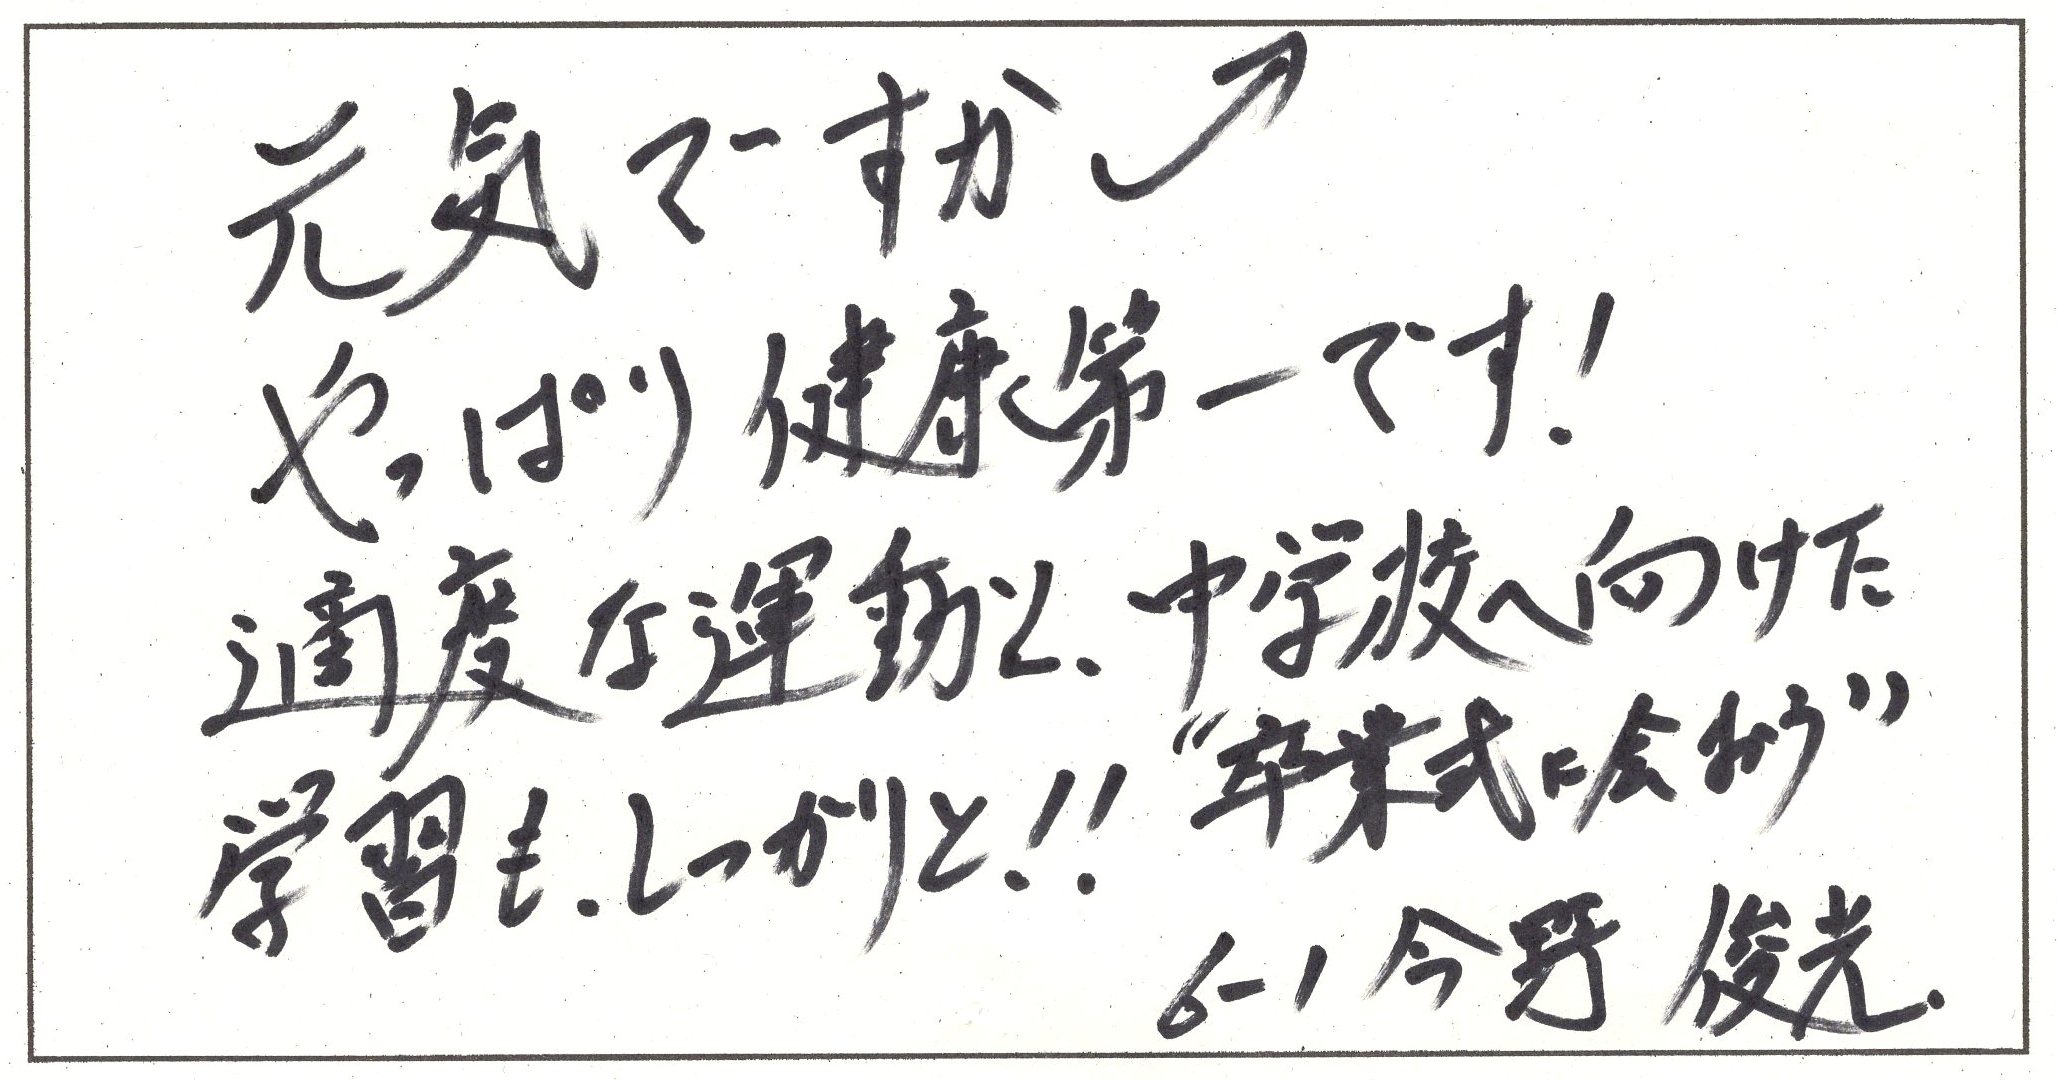 元気でーすか⤴
やっぱり健康第一です!
適度な運動と、中学校へ向けた
学習も、しっかりと!!
“卒業式に会おう”
6-1 今野 俊光.